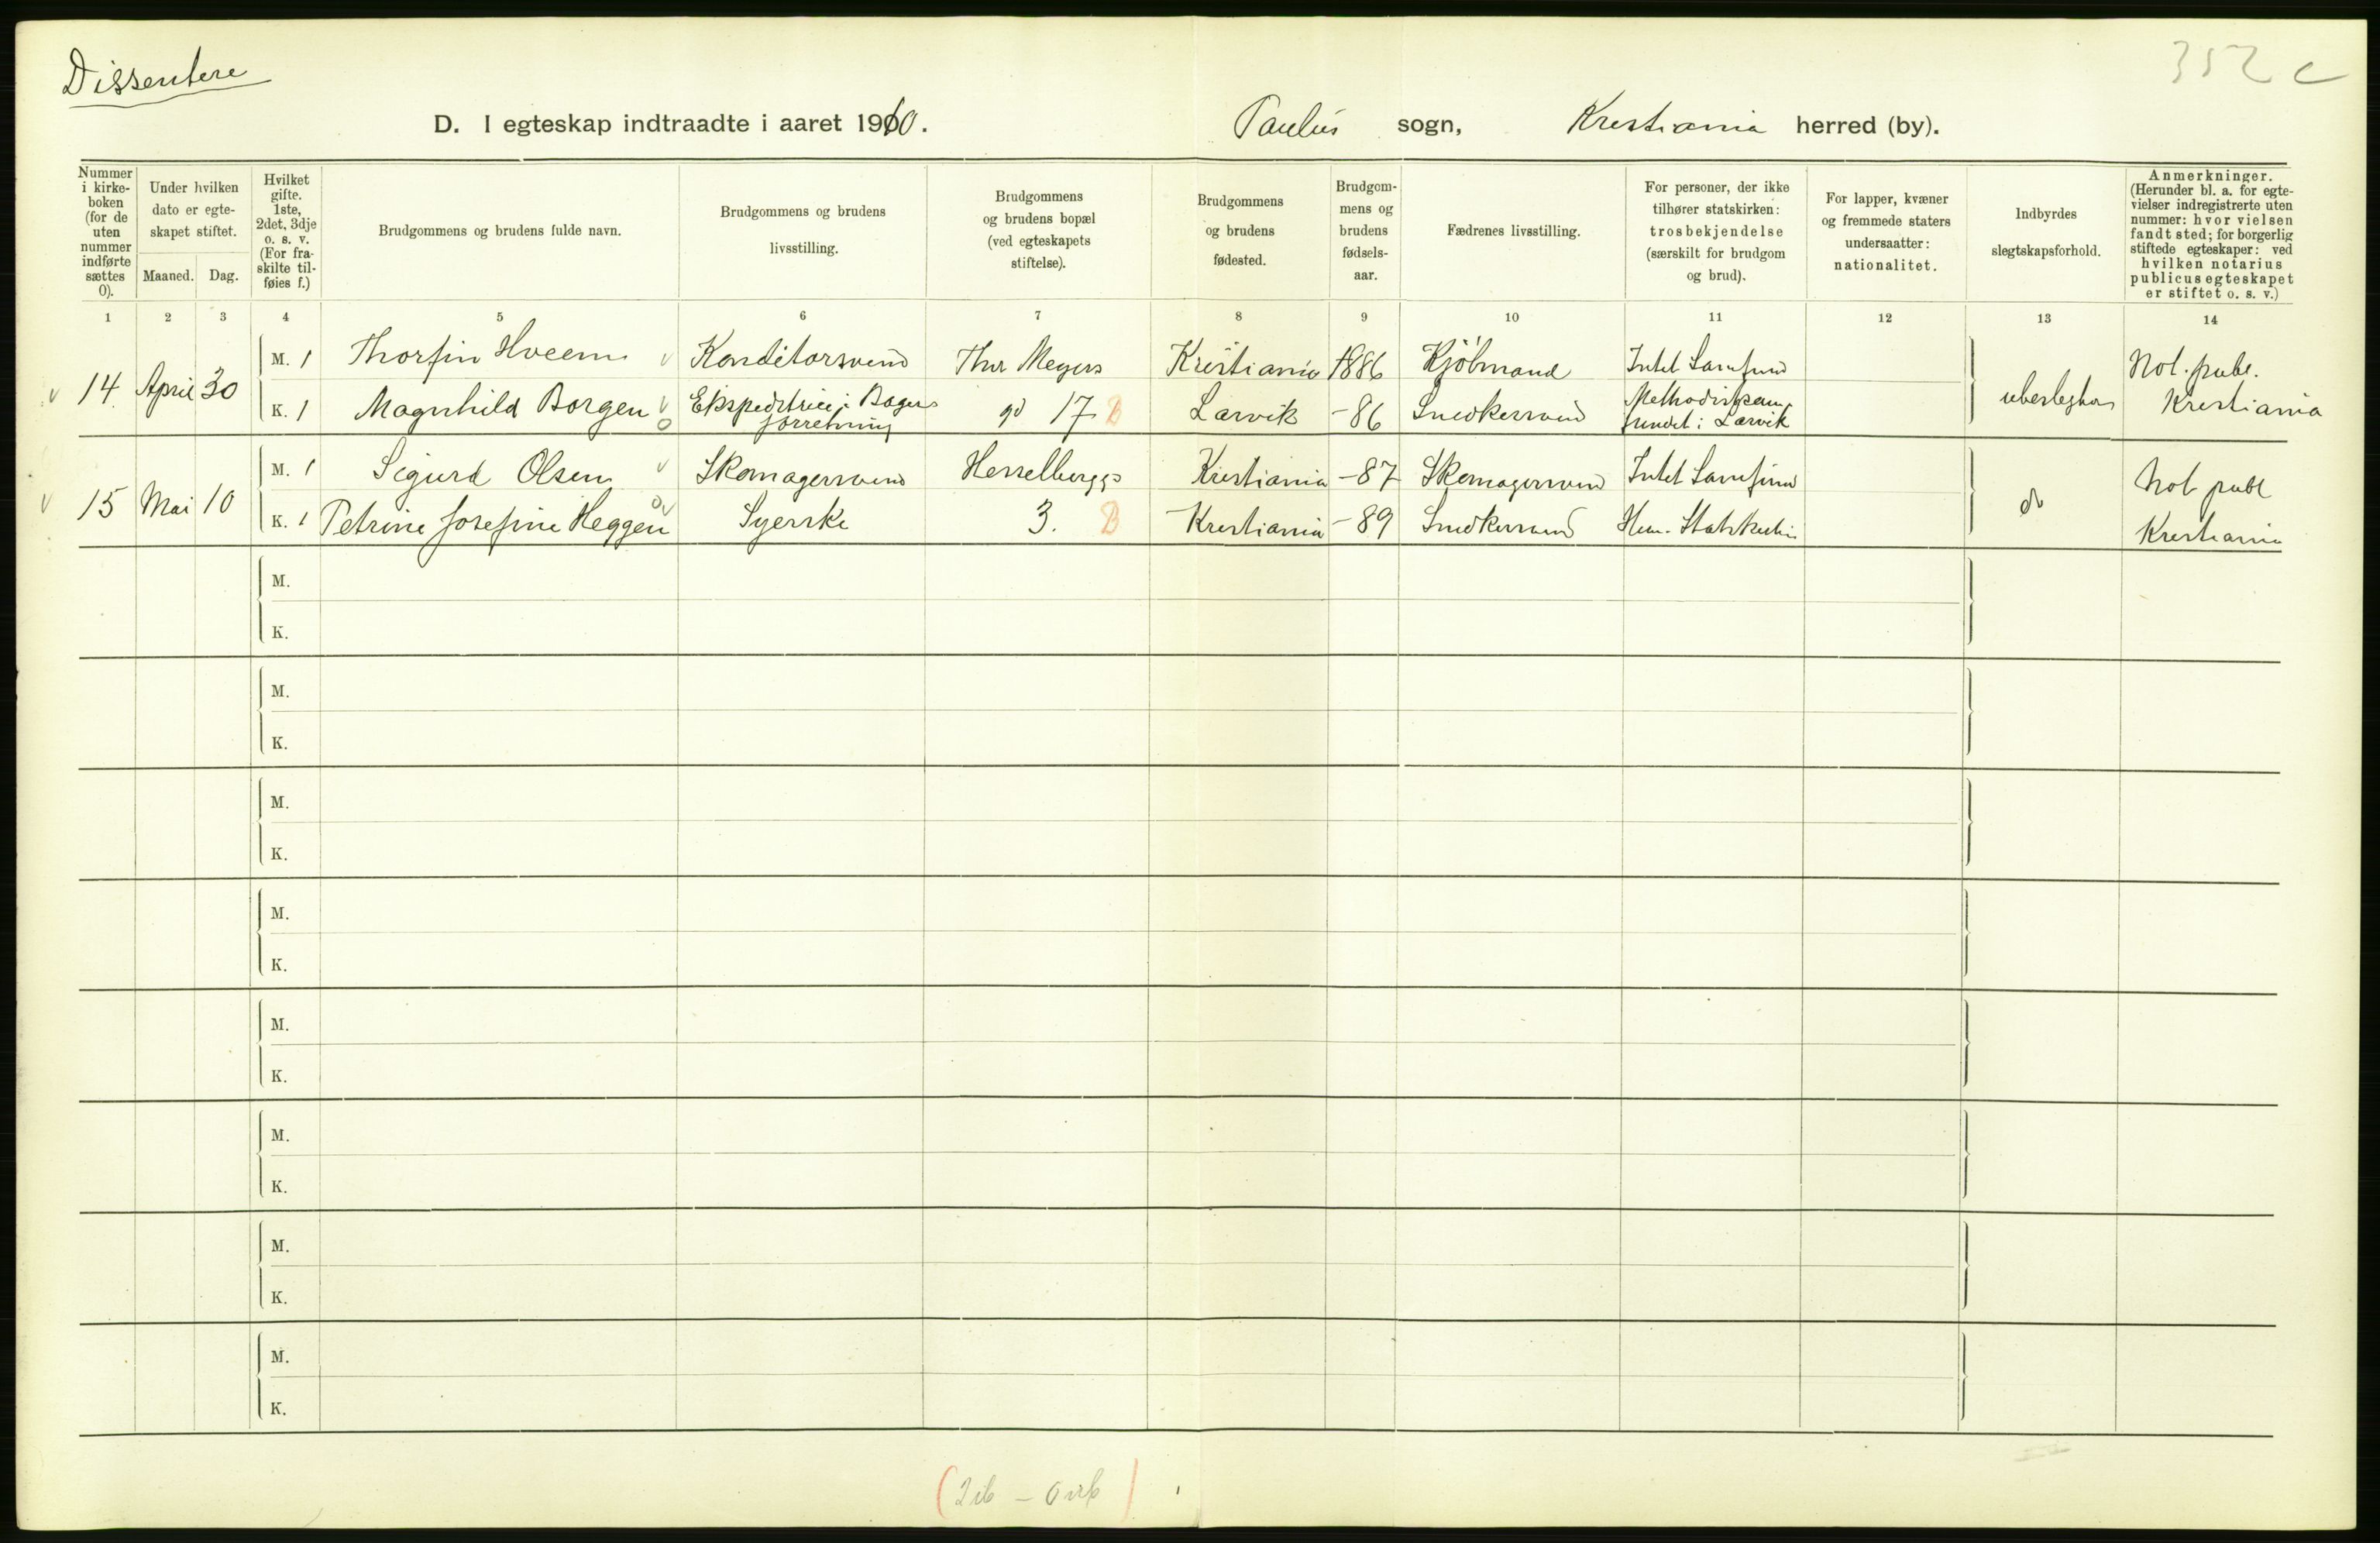 Dissentere
352 c
D. I egteskap indtraadte i aaret 1910. Paulus sogn, Kristiania herred (by).
Nummer i kirke-boken (for de uten nummer indførte sættes 0).
Under hvilken dato er egte-skapet stiftet.
Maaned. Dag.
Hvilket gifte. 1ste, 2det, 3dje o. s. v. (For fra-skilte til-føies f.)
Brudgommens og brudens fulde navn.
Brudgommens og brudens livsstilling.
Brudgommens og brudens bopæl (ved egteskapets stiftelse).
Brudgommens og brudens fødested.
Brudgom-mens og brudens fødsels-aar.
Fædrenes livsstilling.
For personer, der ikke tilhører statskirken: trosbekjendelse (særskilt for brudgom og brud).
For lapper, kvæner og fremmede staters undersaatter: nationalitet.
Indbyrdes slegtskapsforhold.
Anmerkninger. (Herunder bl. a. for egte-vielser indregistrerte uten nummer: hvor vielsen fandt sted; for borgerlig stiftede egteskaper: ved hvilken notarius publicus egteskapet er stiftet o. s. v.)
1 2 3 4 5 6 7 8 9 10 11 12 13 14
14 April 30
M. 1 Thorfin Hveem Konditorsvend Thv Meyers Kristiania 1886 Kjøbmand Intet Samfund
K. 1 Magnhild Borgen Ekspeditrice i Bager forretning gd 17 B Larvik -86 Snedkersvend Methodistsam-fundet i Larvik
ubeslegtet
Not. publ. Kristiania
15 Mai 10
M. 1 Sigurd Olsen Skomagersvend Hesselbergs Kristiania -87 Skomagersvend Intet Samfund
K. 1 Petrine Josefine Heggen Syerske 3. B Kristiania -89 Snedkersvend Hun. Statskirken
do
Not publ Kristiania
M.
K.
M.
K.
M.
K.
M.
K.
M.
K.
M.
K.
M.
K.
M.
K.
(2 ib - 0 ub)